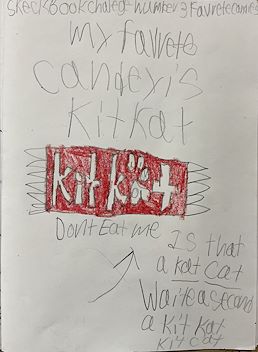 skeckBookchaleg number3 Favretecandes
my favrete
candey is
kitkat
kit kät
Dont Eat me
Is that
a kat cat
Waite a second
a kit kat
kit cat